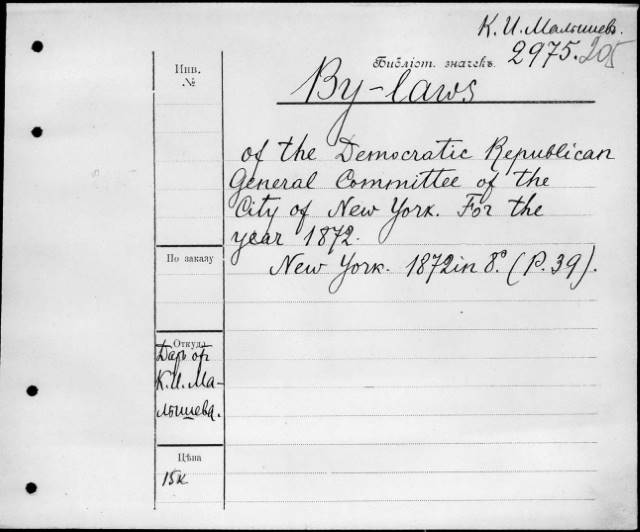 К. И. Малышевъ.
Библіот. значекъ.
2975.205
Инв.
№
By-laws
of the Democratic Republican
General Committee of the
City of New York. For the
year 1872.
По заказу
New York. 1872 in 8º. (P. 39).
Откуда
Даръ от
К. И. Ма-
лышева.
Цѣна
15к